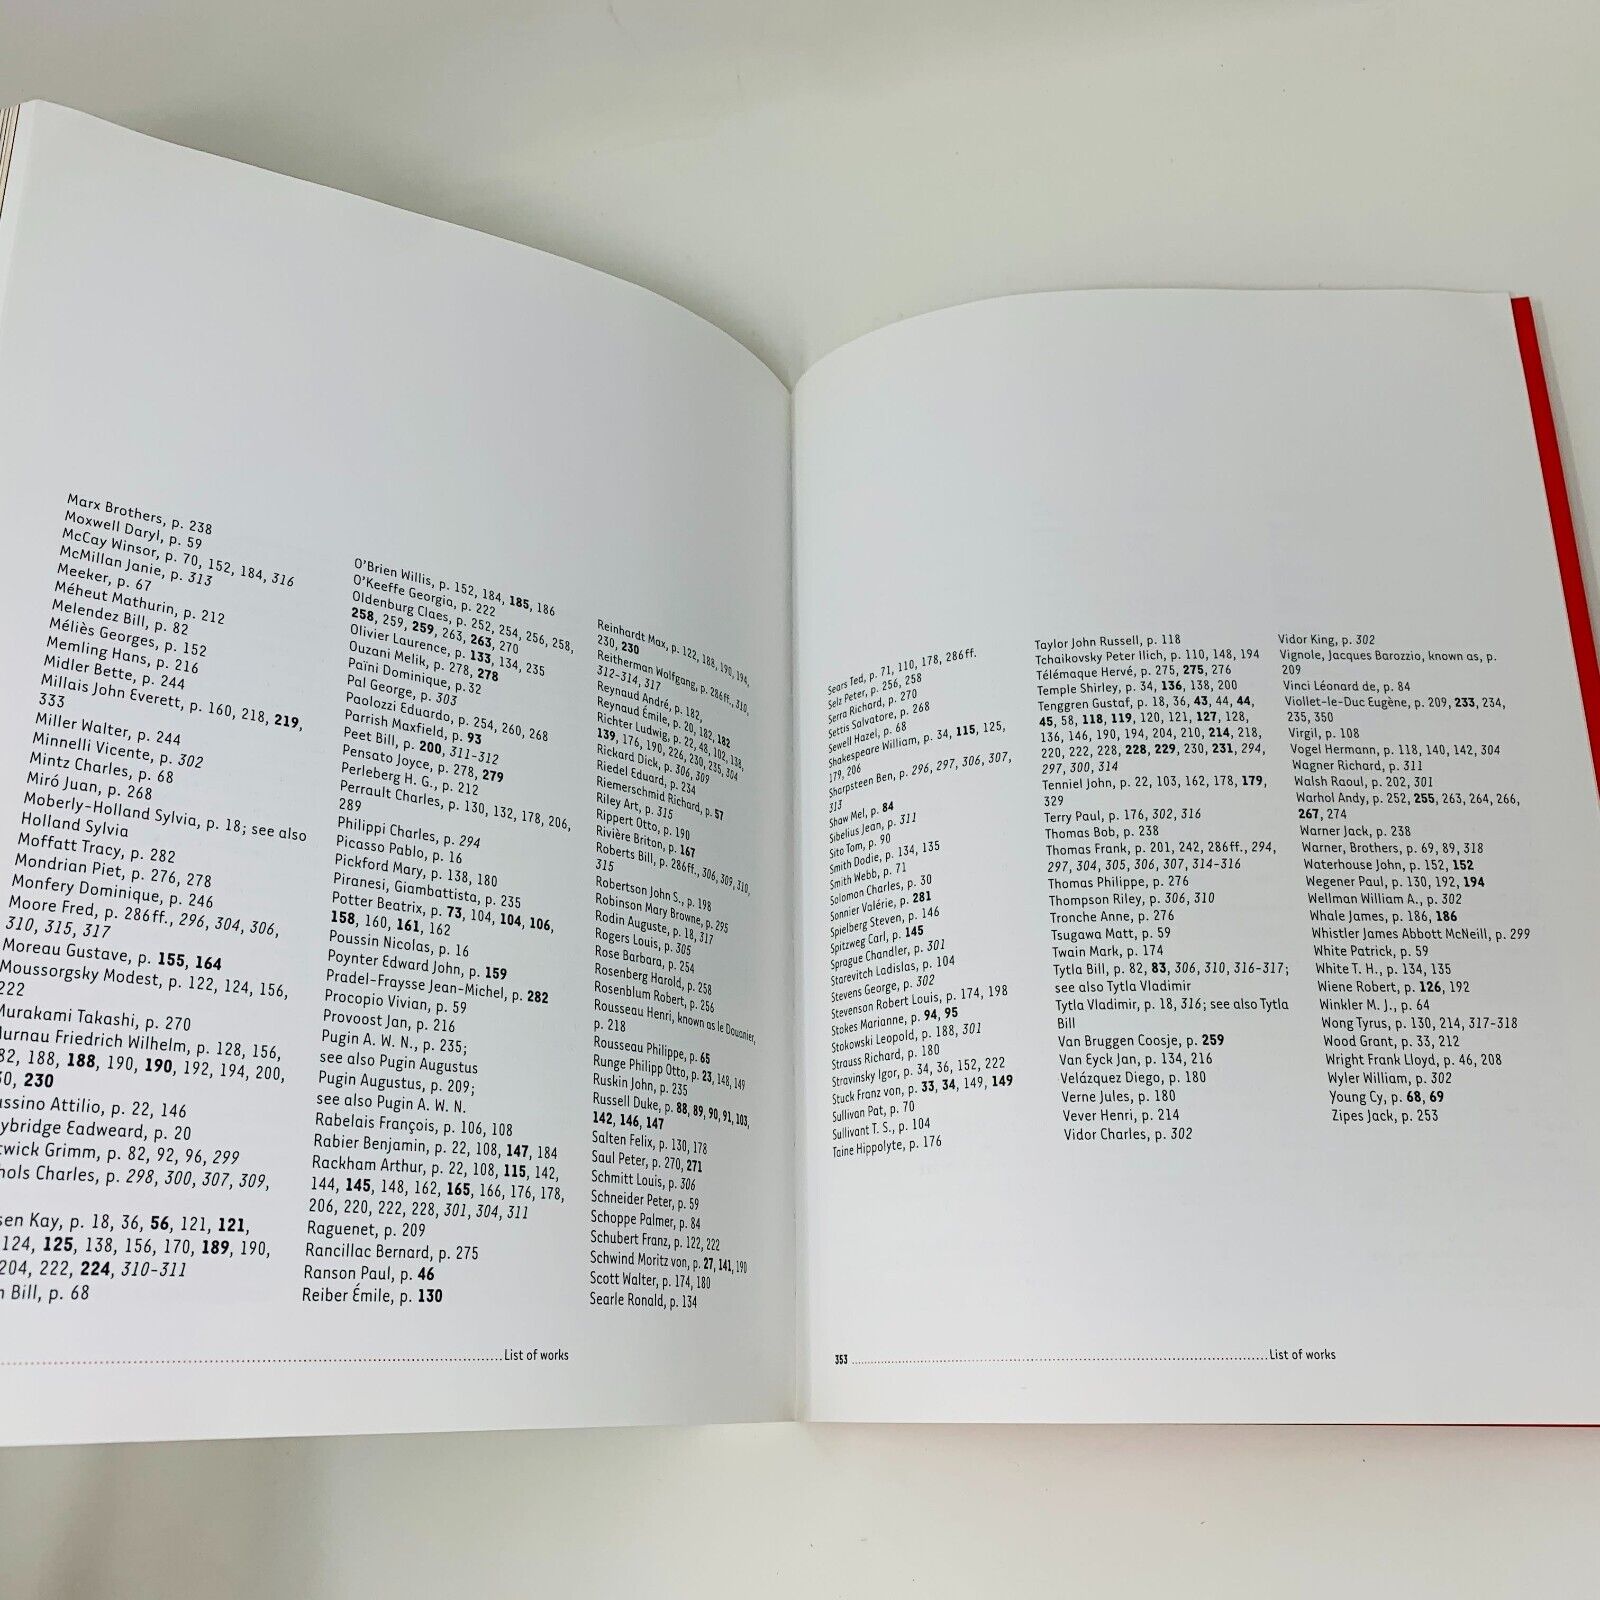 Marx Brothers, p. 238
Moxwell Daryl, p. 59
McCay Winsor, p. 70, 152, 184, 316
McMillan Janie, p. 313
Meeker, p. 67
Méheut Mathurin, p. 212
Melendez Bill, p. 82
Méliès Georges, p. 152
Memling Hans, p. 216
Midler Bette, p. 244
Millais John Everett, p. 160, 218, 219,
333
Miller Walter, p. 244
Minnelli Vicente, p. 302
Mintz Charles, p. 68
Miró Juan, p. 268
Moberly-Holland Sylvia, p. 18; see also
Holland Sylvia
Moffatt Tracy, p. 282
Mondrian Piet, p. 276, 278
Monfery Dominique, p. 246
Moore Fred, p. 286ff., 296, 304, 306,
310, 315, 317
Moreau Gustave, p. 155, 164
Moussorgsky Modest, p. 122, 124, 156,
222
Murakami Takashi, p. 270
urnau Friedrich Wilhelm, p. 128, 156,
82, 188, 188, 190, 190, 192, 194, 200,
30, 230
ussino Attilio, p. 22, 146
ybridge Eadweard, p. 20
twick Grimm, p. 82, 92, 96, 299
hols Charles, p. 298, 300, 307, 309,
sen Kay, p. 18, 36, 56, 121, 121,
124, 125, 138, 156, 170, 189, 190,
204, 222, 224, 310-311
n Bill, p. 68
O'Brien Willis, p. 152, 184, 185, 186
O'Keeffe Georgia, p. 222
Oldenburg Claes, p. 252, 254, 256, 258,
258, 259, 259, 263, 263, 270
Olivier Laurence, p. 133, 134, 235
Ouzani Melik, p. 278, 278
Païni Dominique, p. 32
Pal George, p. 303
Paolozzi Eduardo, p. 254, 260, 268
Parrish Maxfield, p. 93
Peet Bill, p. 200, 311-312
Pensato Joyce, p. 278, 279
Perleberg H. G., p. 212
Perrault Charles, p. 130, 132, 178, 206,
289
Philippi Charles, p. 294
Picasso Pablo, p. 16
Pickford Mary, p. 138, 180
Piranesi, Giambattista, p. 235
Potter Beatrix, p. 73, 104, 104, 106,
158, 160, 161, 162
Poussin Nicolas, p. 16
Poynter Edward John, p. 159
Pradel-Fraysse Jean-Michel, p. 282
Procopio Vivian, p. 59
Provoost Jan, p. 216
Pugin A. W. N., p. 235;
see also Pugin Augustus
Pugin Augustus, p. 209;
see also Pugin A. W. N.
Rabelais François, p. 106, 108
Rabier Benjamin, p. 22, 108, 147, 184
Rackham Arthur, p. 22, 108, 115, 142,
144, 145, 148, 162, 165, 166, 176, 178,
206, 220, 222, 228, 301, 304, 311
Raguenet, p. 209
Rancillac Bernard, p. 275
Ranson Paul, p. 46
Reiber Émile, p. 130
Reinhardt Max, p. 122, 188, 190, 194,
230, 230
Reitherman Wolfgang, p. 286ff., 310,
312-314, 317
Reynaud André, p. 182,
Reynaud Émile, p. 20, 182, 182
Richter Ludwig, p. 22, 48, 102, 138,
139, 176, 190, 226, 230, 235, 304
Rickard Dick, p. 306, 309
Riedel Eduard, p. 234
Riemerschmid Richard, p. 57
Riley Art, p. 315
Rippert Otto, p. 190
Rivière Briton, p. 167
Roberts Bill, p. 286ff., 306, 309, 310,
315
Robertson John S., p. 198
Robinson Mary Browne, p. 295
Rodin Auguste, p. 18, 317
Rogers Louis, p. 305
Rose Barbara, p. 254
Rosenberg Harold, p. 258
Rosenblum Robert, p. 256
Rousseau Henri, known as le Douanier,
p. 218
Rousseau Philippe, p. 65
Runge Philipp Otto, p. 23, 148, 149
Ruskin John, p. 235
Russell Duke, p. 88, 89, 90, 91, 103,
142, 146, 147
Salten Felix, p. 130, 178
Saul Peter, p. 270, 271
Schmitt Louis, p. 306
Schneider Peter, p. 59
Schoppe Palmer, p. 84
Schubert Franz, p. 122, 222
Schwind Moritz von, p. 27, 141, 190
Scott Walter, p. 174, 180
Searle Ronald, p. 134
List of works
Sears Ted, p. 71, 110, 178, 286ff.
Selz Peter, p. 256, 258
Serra Richard, p. 270
Settis Salvatore, p. 268
Sewell Hazel, p. 68
Shakespeare William, p. 34, 115, 125,
179, 206
Sharpsteen Ben, p. 296, 297, 306, 307,
313
Shaw Mel, p. 84
Sibelius Jean, p. 311
Sito Tom, p. 90
Smith Dodie, p. 134, 135
Smith Webb, p. 71
Solomon Charles, p. 30
Sonnier Valérie, p. 281
Spielberg Steven, p. 146
Spitzweg Carl, p. 145
Sprague Chandler, p. 301
Starevitch Ladislas, p. 104
Stevens George, p. 302
Stevenson Robert Louis, p. 174, 198
Stokes Marianne, p. 94, 95
Stokowski Leopold, p. 188, 301
Strauss Richard, p. 180
Stravinsky Igor, p. 34, 36, 152, 222
Stuck Franz von, p. 33, 34, 149, 149
Sullivan Pat, p. 70
Sullivant T. S., p. 104
Taine Hippolyte, p. 176
Taylor John Russell, p. 118
Tchaikovsky Peter Ilich, p. 110, 148, 194
Télémaque Hervé, p. 275, 275, 276
Temple Shirley, p. 34, 136, 138, 200
Tenggren Gustaf, p. 18, 36, 43, 44, 44,
45, 58, 118, 119, 120, 121, 127, 128,
136, 146, 190, 194, 204, 210, 214, 218,
220, 222, 228, 228, 229, 230, 231, 294,
297, 300, 314
Tenniel John, p. 22, 103, 162, 178, 179,
329
Terry Paul, p. 176, 302, 316
Thomas Bob, p. 238
Thomas Frank, p. 201, 242, 286ff., 294,
297, 304, 305, 306, 307, 314-316
Thomas Philippe, p. 276
Thompson Riley, p. 306, 310
Tronche Anne, p. 276
Tsugawa Matt, p. 59
Twain Mark, p. 174
Tytla Bill, p. 82, 83, 306, 310, 316-317;
see also Tytla Vladimir
Tytla Vladimir, p. 18, 316; see also Tytla
Bill
Van Bruggen Coosje, p. 259
Van Eyck Jan, p. 134, 216
Velázquez Diego, p. 180
Verne Jules, p. 180
Vever Henri, p. 214
Vidor Charles, p. 302
Vidor King, p. 302
Vignole, Jacques Barozzio, known as, p.
209
Vinci Léonard de, p. 84
Viollet-le-Duc Eugène, p. 209, 233, 234,
235, 350
Virgil, p. 108
Vogel Hermann, p. 118, 140, 142, 304
Wagner Richard, p. 311
Walsh Raoul, p. 202, 301
Warhol Andy, p. 252, 255, 263, 264, 266,
267, 274
Warner Jack, p. 238
Warner, Brothers, p. 69, 89, 318
Waterhouse John, p. 152, 152
Wegener Paul, p. 130, 192, 194
Wellman William A., p. 302
Whale James, p. 186, 186
Whistler James Abbott McNeill, p. 299
White Patrick, p. 59
White T. H., p. 134, 135
Wiene Robert, p. 126, 192
Winkler M. J., p. 64
Wong Tyrus, p. 130, 214, 317-318
Wood Grant, p. 33, 212
Wright Frank Lloyd, p. 46, 208
Wyler William, p. 302
Young Cy, p. 68, 69
Zipes Jack, p. 253
353 List of works